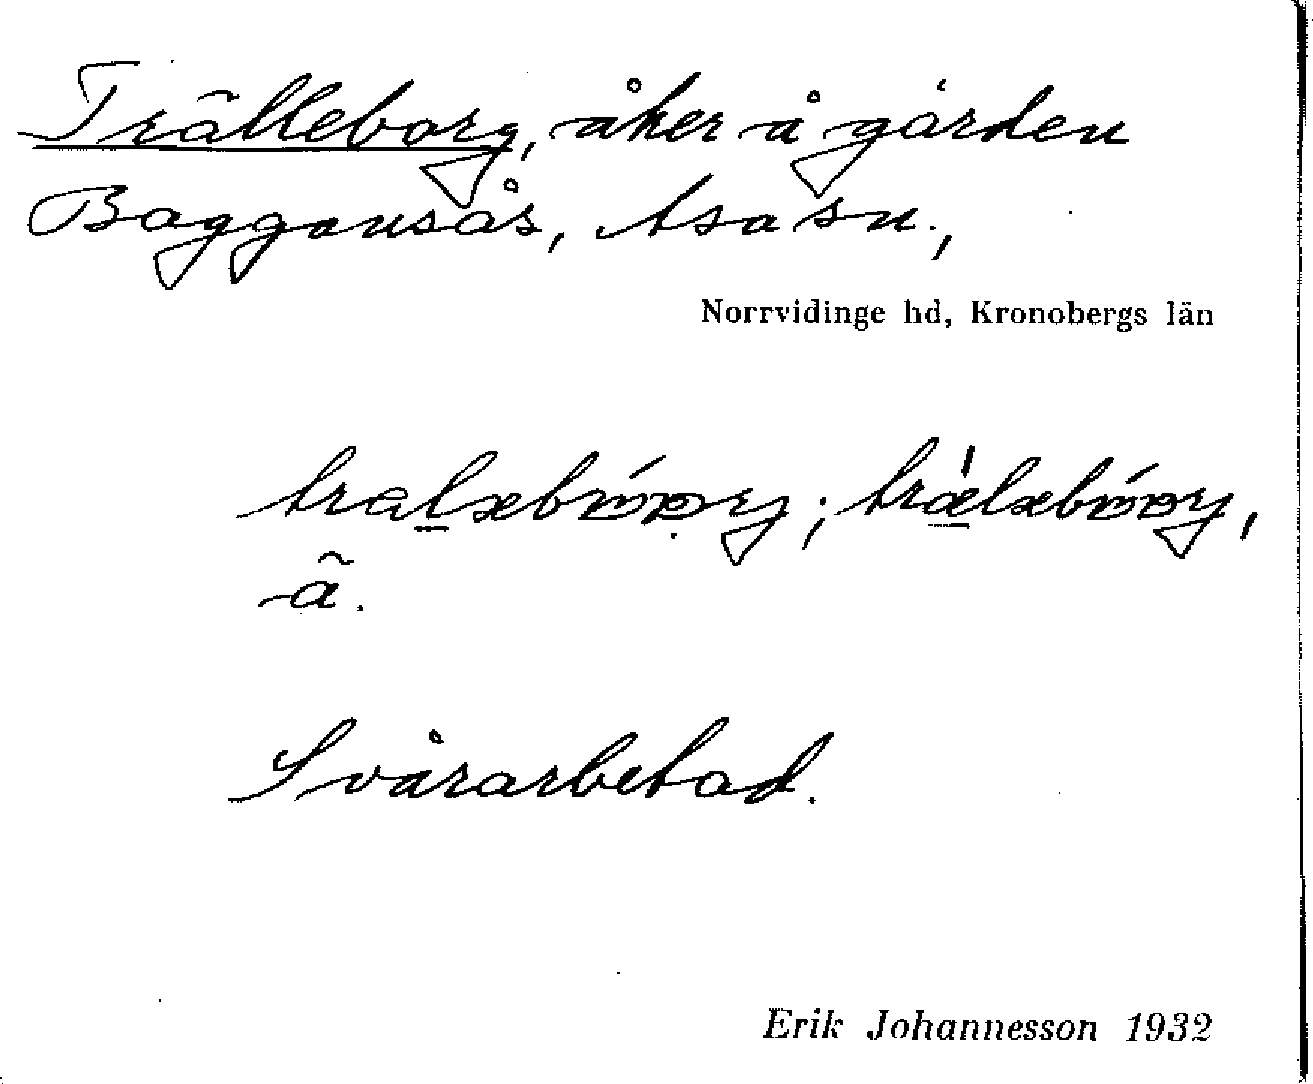 Trälleborg, åker å gården
Baggansås, Asa sn.,
Norrvidinge hd, Kronobergs län
ã.
Svårarbetad.
Erik Johannesson 1932